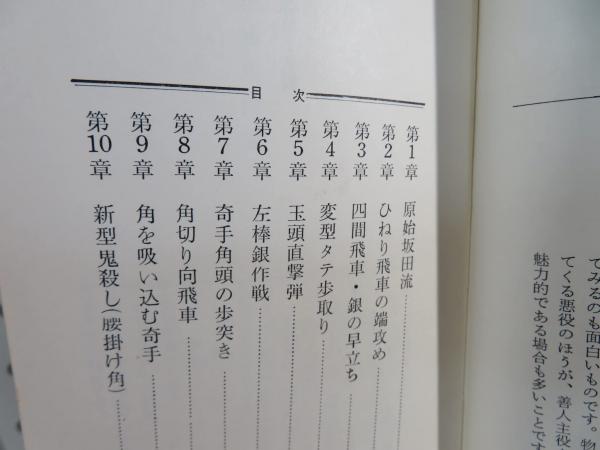 てみるのも面白いものです。物
てくる悪役のほうが、善人主役
魅力的である場合も多いことです
目次
第1章 原始坂田流
第2章 ひねり飛車の端攻め
第3章 四間飛車・銀の早立ち
第4章 変型タテ歩取り
第5章 玉頭直撃弾
第6章 左棒銀作戦
第7章 奇手角頭の歩突き
第8章 角切り向飛車
第9章 角を吸い込む奇手
第10章 新型鬼殺し(腰掛け角)